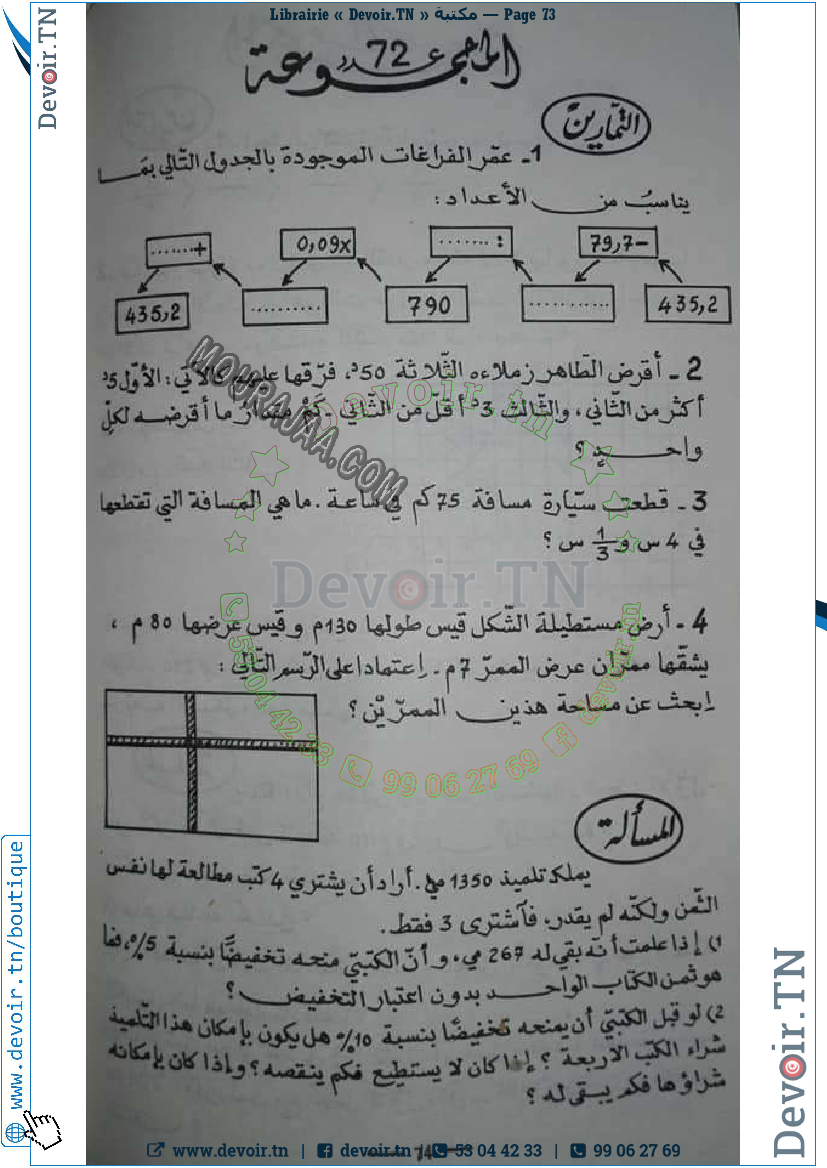 Librairie « Devoir.TN » مكتبة — Page 73
Devoir.TN
المجموعة عدد 72
التمارين
1- عمّر الفراغات الموجودة بالجدول التّالي بمَا
يناسبُ من الأعداد :
.......+ 0,09x ....... : 79,7-
435,2 .......... 790 ........... 435,2
2- أقرض الطّاهر زملاءه الثّلاثة 50د, فرّقها عليهم كالآتي : الأوّل 5د
أكثر من الثّاني، والثّالث 3د أقلّ من الثّاني - كَمْ مقدارُ ما أقرضه لكلّ
واحدٍ ؟
3- قطعت سيّارة مسافة 75 كم في ساعة . ما هي المسافة التي تقطعها
في 4 س و 1/3 س ؟
4- أرض مستطيلة الشّكل قيس طولها 130م وقيس عرضها 80 م ،
يشقّها ممرّان عرض الممرّ 7م . اعتمادا على الرّسم التّالي :
ابحث عن مساحة هذين الممرّيْن ؟
المسألة
يملك تلميذ 1350 مي . أراد أن يشتري 4 كتب مطالعة لها نفس
الثّمن ولكنّه لم يقدر، فآشترى 3 فقط .
1) إذا علمت أنّه بقي له 267 مي، وأنّ الكتبيّ منحه تخفيضًا بنسبة 5%، فما
هو ثمن الكتاب الواحد بدون اعتبار التخفيض ؟
2) لو قبل الكتبيّ أن يمنحه تخفيضًا بنسبة 10% هل يكون بإمكان هذا التّلميذ
شراء الكتب الأربعة ؟ إذا كان لا يستطيع فكم ينقصه ؟ وإذا كان بإمكانه
شراؤها فكم يبقى له ؟
MOURAJAA.COM
devoir.tn
Devoir.TN
53 04 42 33 99 06 27 69 devoir.tn
www.devoir.tn/boutique
Devoir.TN
www.devoir.tn | devoir.tn | 53 04 42 33 | 99 06 27 69
74